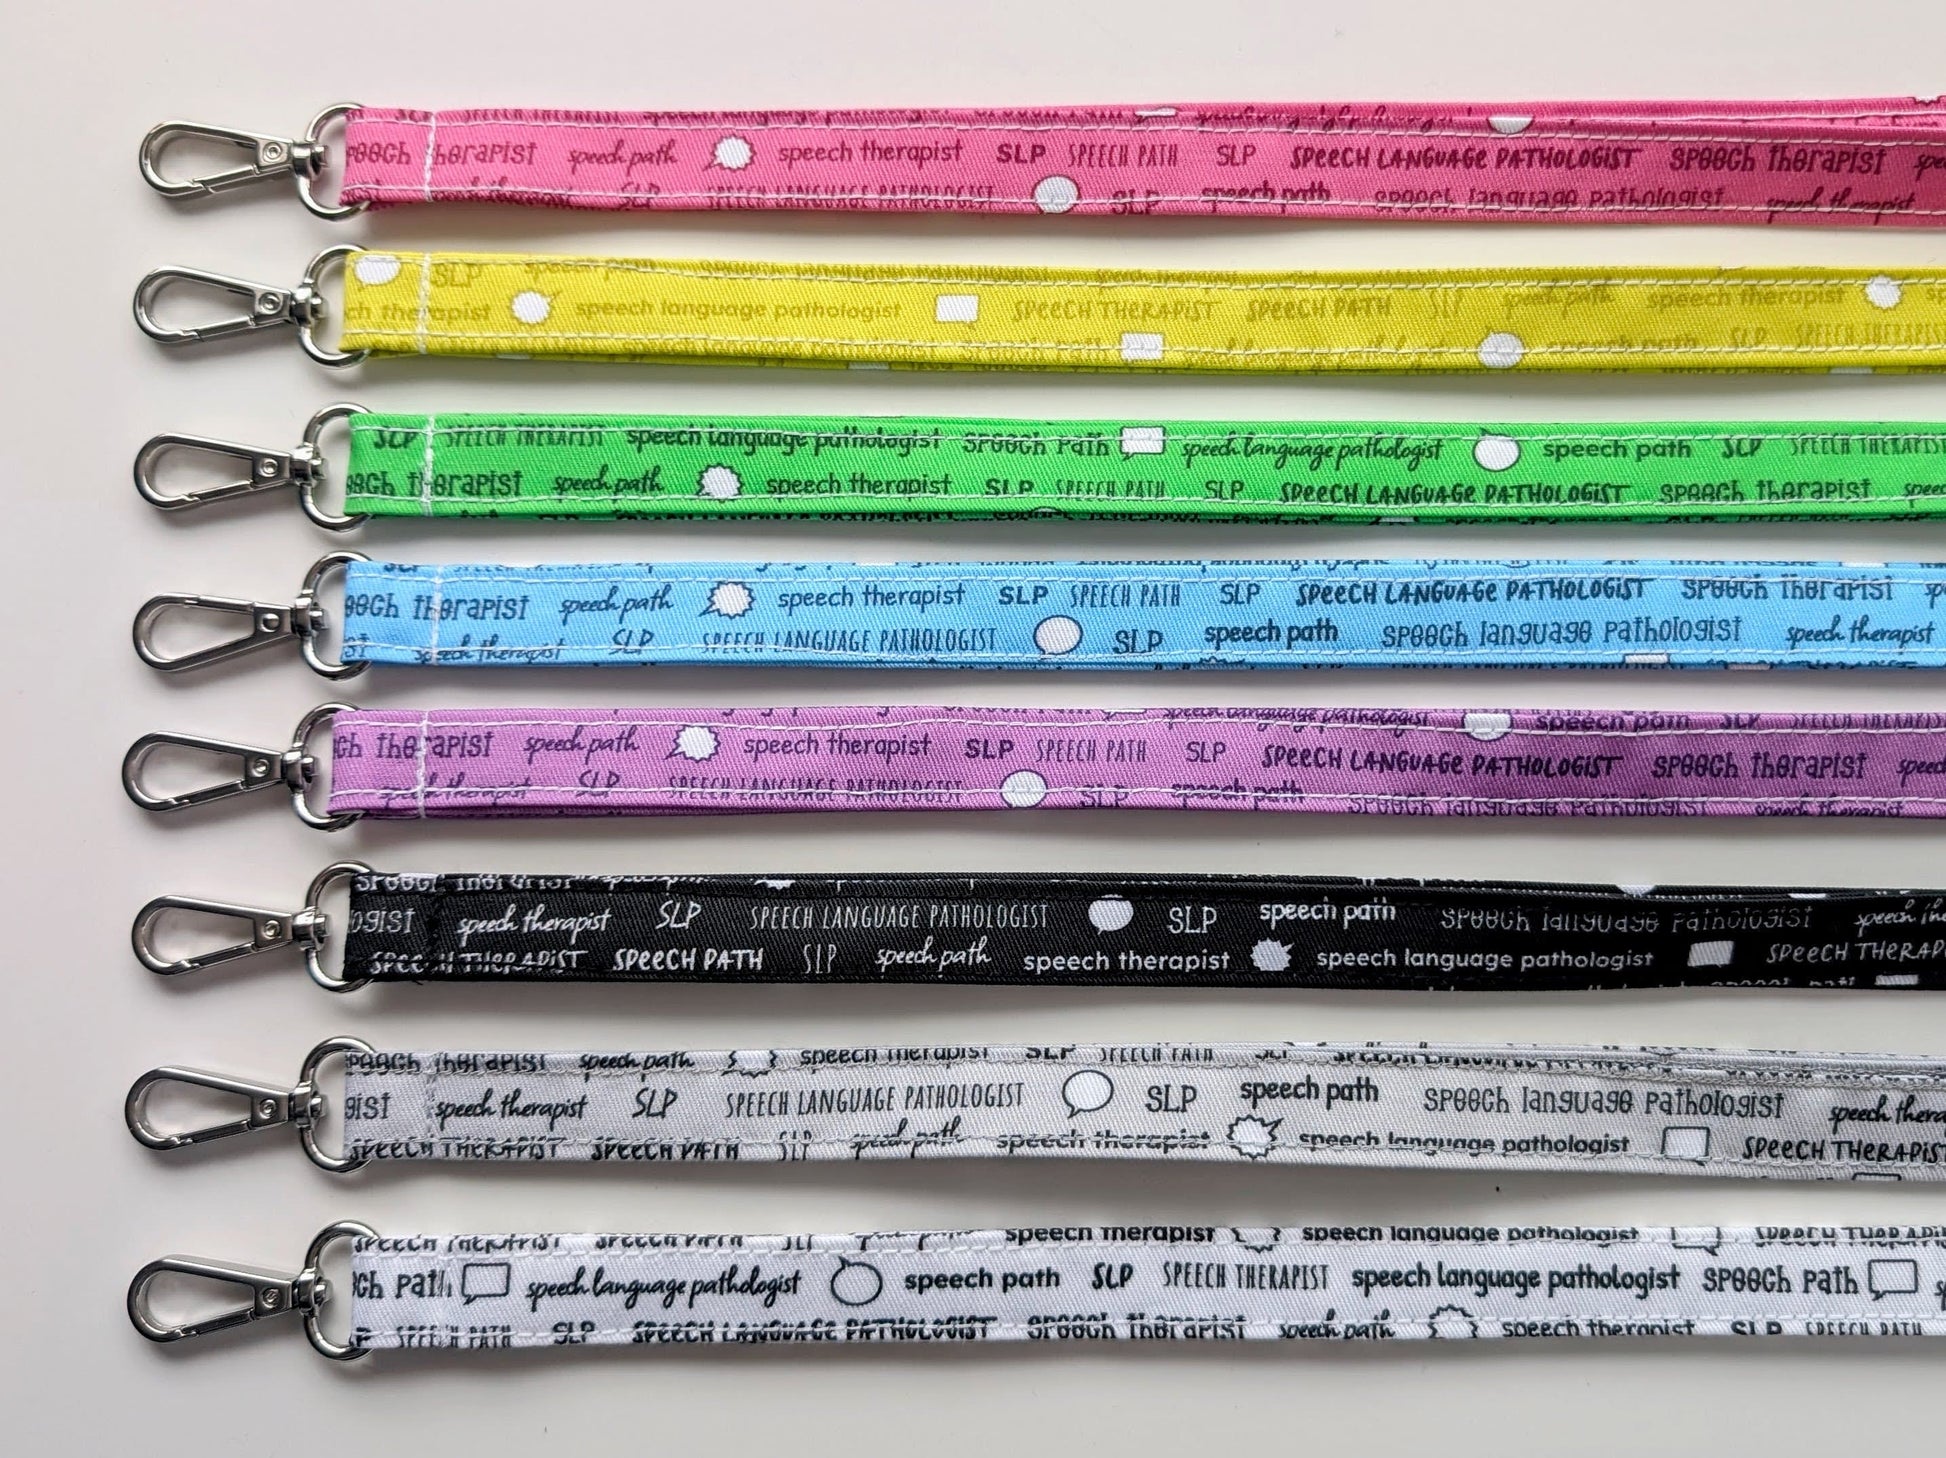 therapist speech path speech therapist SLP SPEECH PATH SLP SPeeCH LANGUAGe PATHOLOGIST speech therapist
SLP SPEECH LANGUAGE PATHOLOGIST SLP speech path speech language pathologist speech therapist
SLP speech path
therapist speech language pathologist SPEECH THERAPIST SPEECH PATH SLP speech path speech therapist
speech path SLP SPEECH THERAPIST
SLP SPEECH THERAPIST speech language pathologist speech path speech language pathologist speech path SLP SPEECH THERAPIST
therapist speech path speech therapist SLP SPEECH PATH SLP SPeeCH LANGUAGe PATHOLOGIST speech therapist
speech therapist speech path speech therapist SLP SPEECH PATH SLP SPeeCH LANGUAGe PATHOLOGiST speech therapist
speech therapist SLP SPEECH LANGUAGE PATHOLOGIST SLP speech path speech language pathologist speech therapist
speech language pathologist speech path SLP SPEECH THERAPIST
therapist speech path speech therapist SLP SPEECH PATH SLP SPeeCH LANGUAGe PATHOLOGIST speech therapist
speech therapist SLP SPEECH LANGUAGE PATHOLOGIST SLP speech path speech language pathologist speech therapist
speech therapist
speech therapist SLP SPEECH LANGUAGE PATHOLOGIST SLP speech path speech language pathologist speech
SPeeCH THeRAPiST SPeeCH PATH SLP speech path speech therapist speech language pathologist SPeeCH
speech therapist speech path speech therapist SLP SPEECH PATH
speech therapist SLP SPEECH LANGUAGE PATHOLOGIST SLP speech path speech language pathologist speech
SPeeCH THeRAPiST SPeeCH PATH SLP speech path speech therapist speech language pathologist SPeeCH THeRAPiST
SPeeCH THeRAPiST SPeeCH PATH SLP speech therapist speech language pathologist
path speech language pathologist speech path SLP SPEECH THERAPIST speech language pathologist speech path
SPEECH PATH SLP SPeeCH LANGUAGe PATHOLOGiST speech therapist speech path speech therapist SLP SPEECH PATH